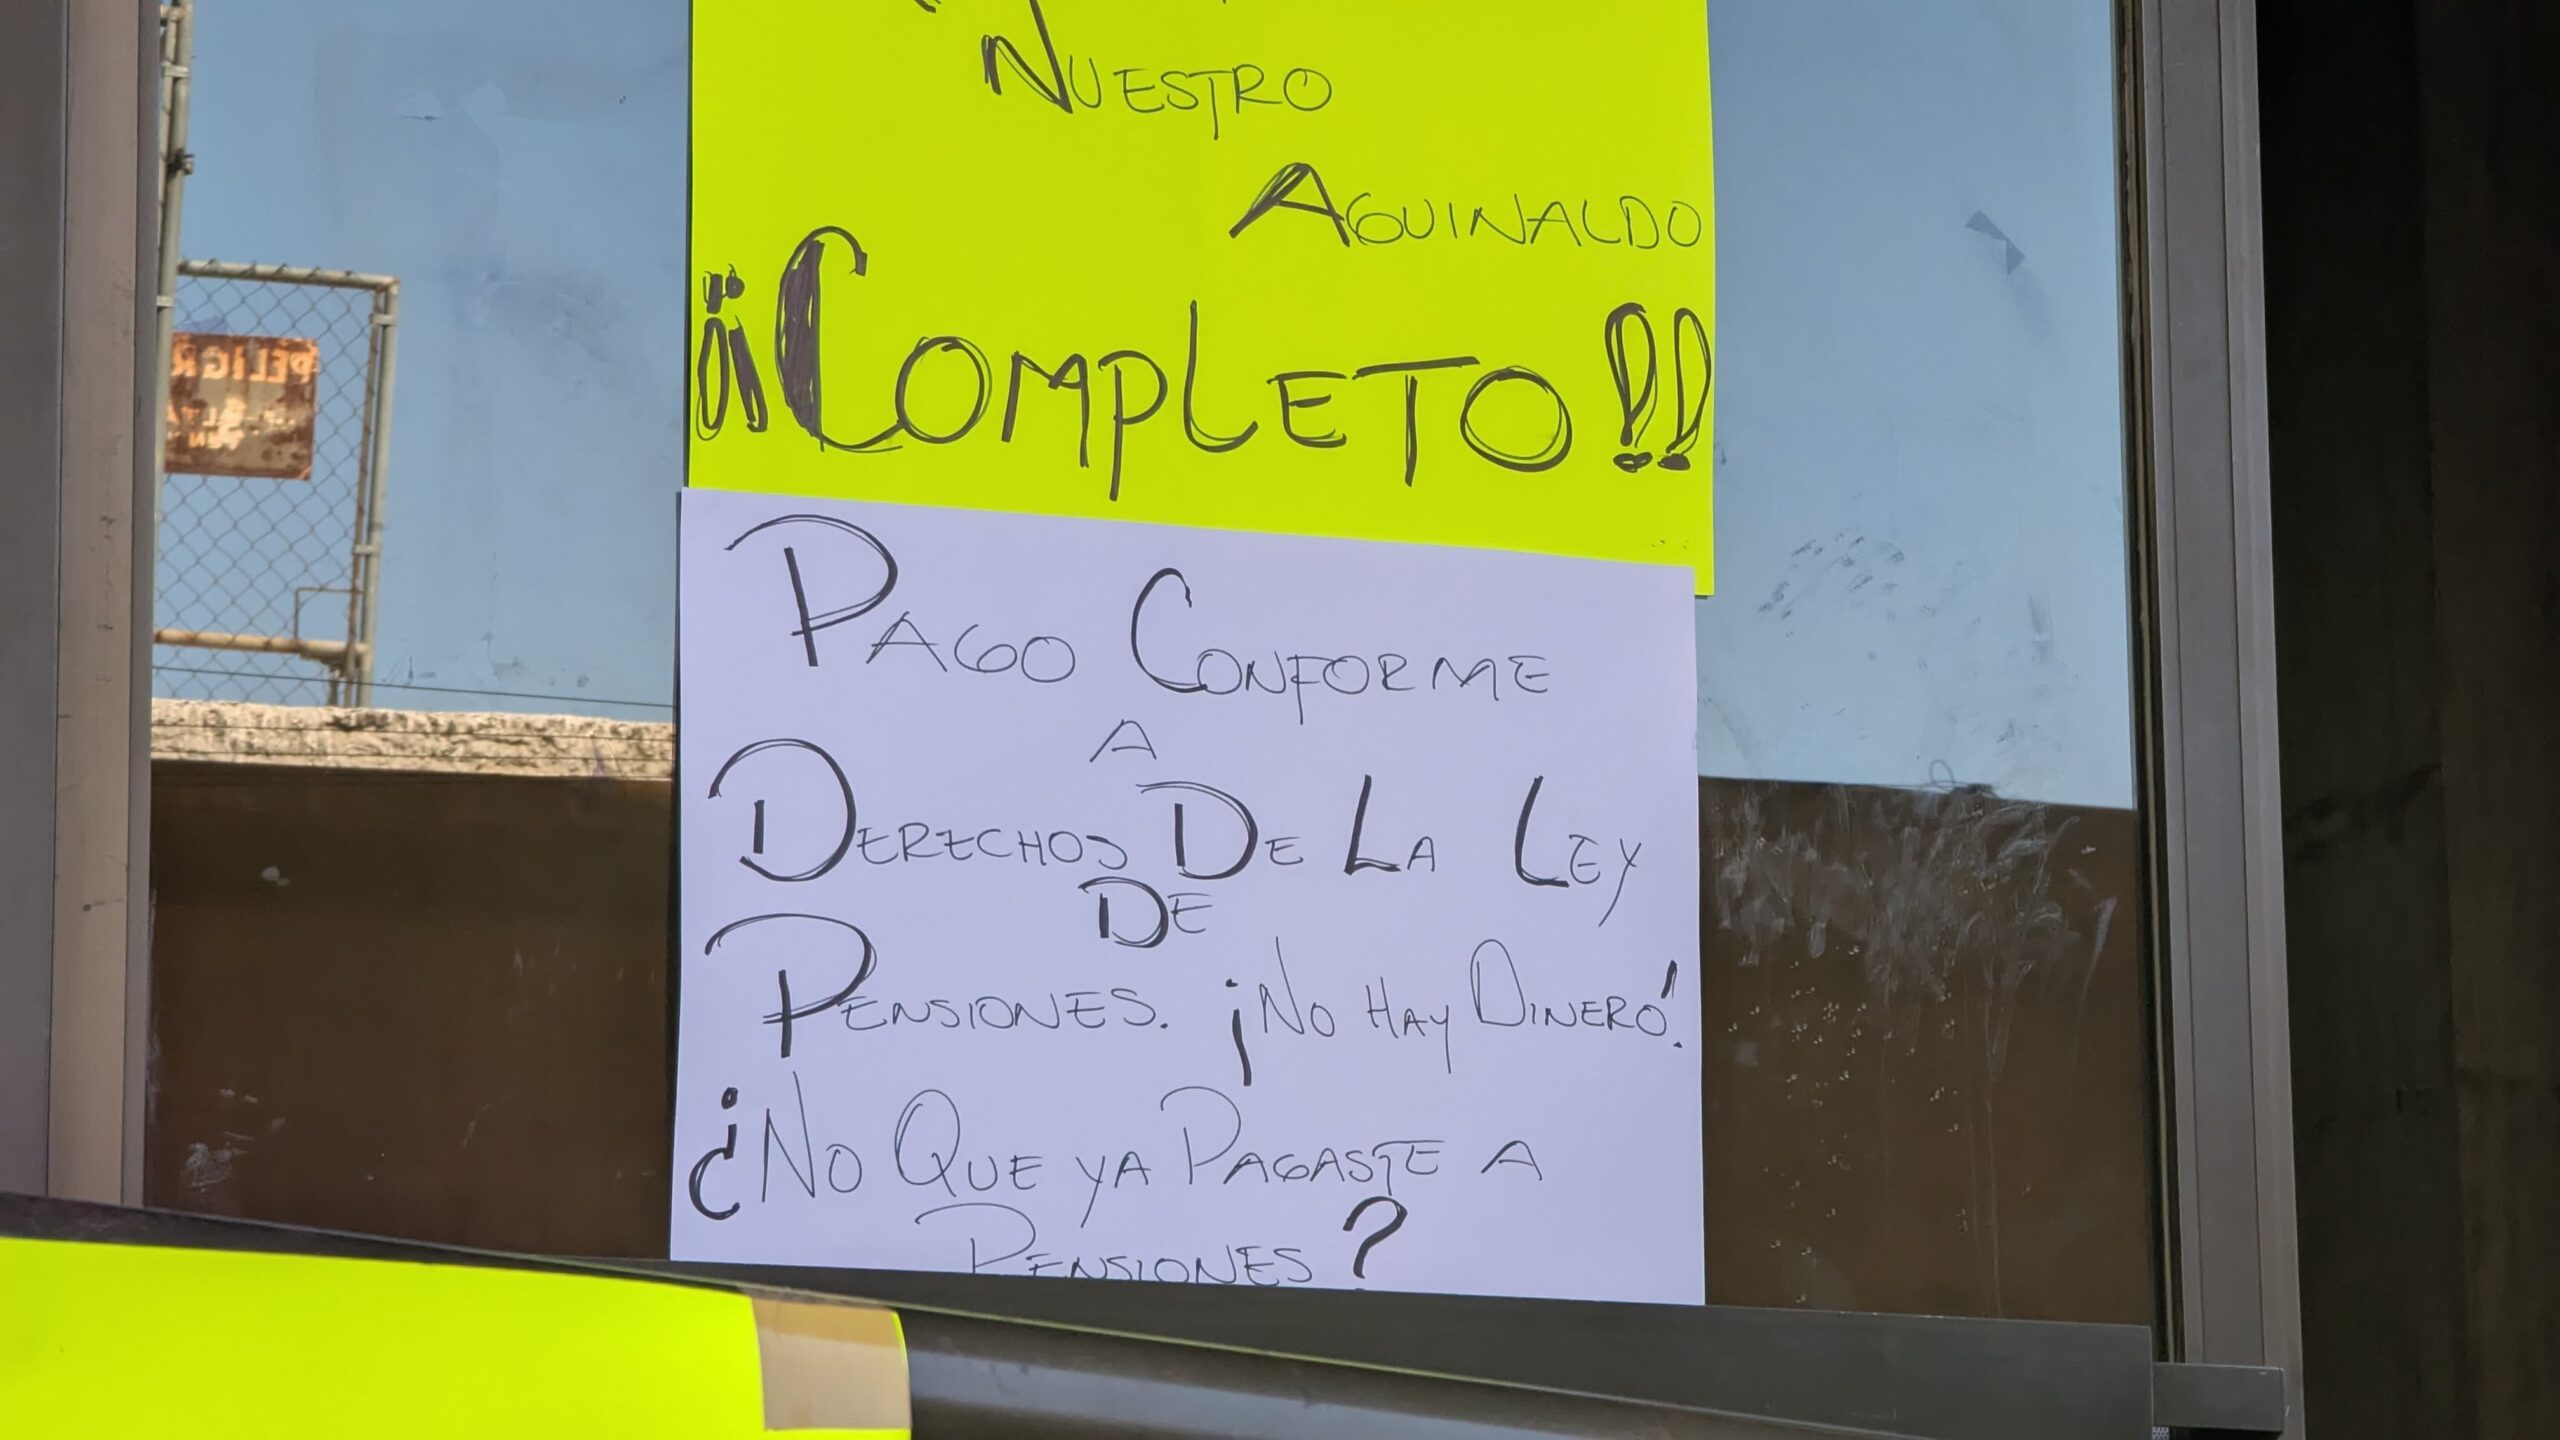 Nuestro
Aguinaldo
¡¡Completo!!
Pago Conforme
a
Derechos De La Ley
De
Pensiones. ¡No Hay Dinero!
¿No Que ya Pagaste a
Pensiones?
PELIGR